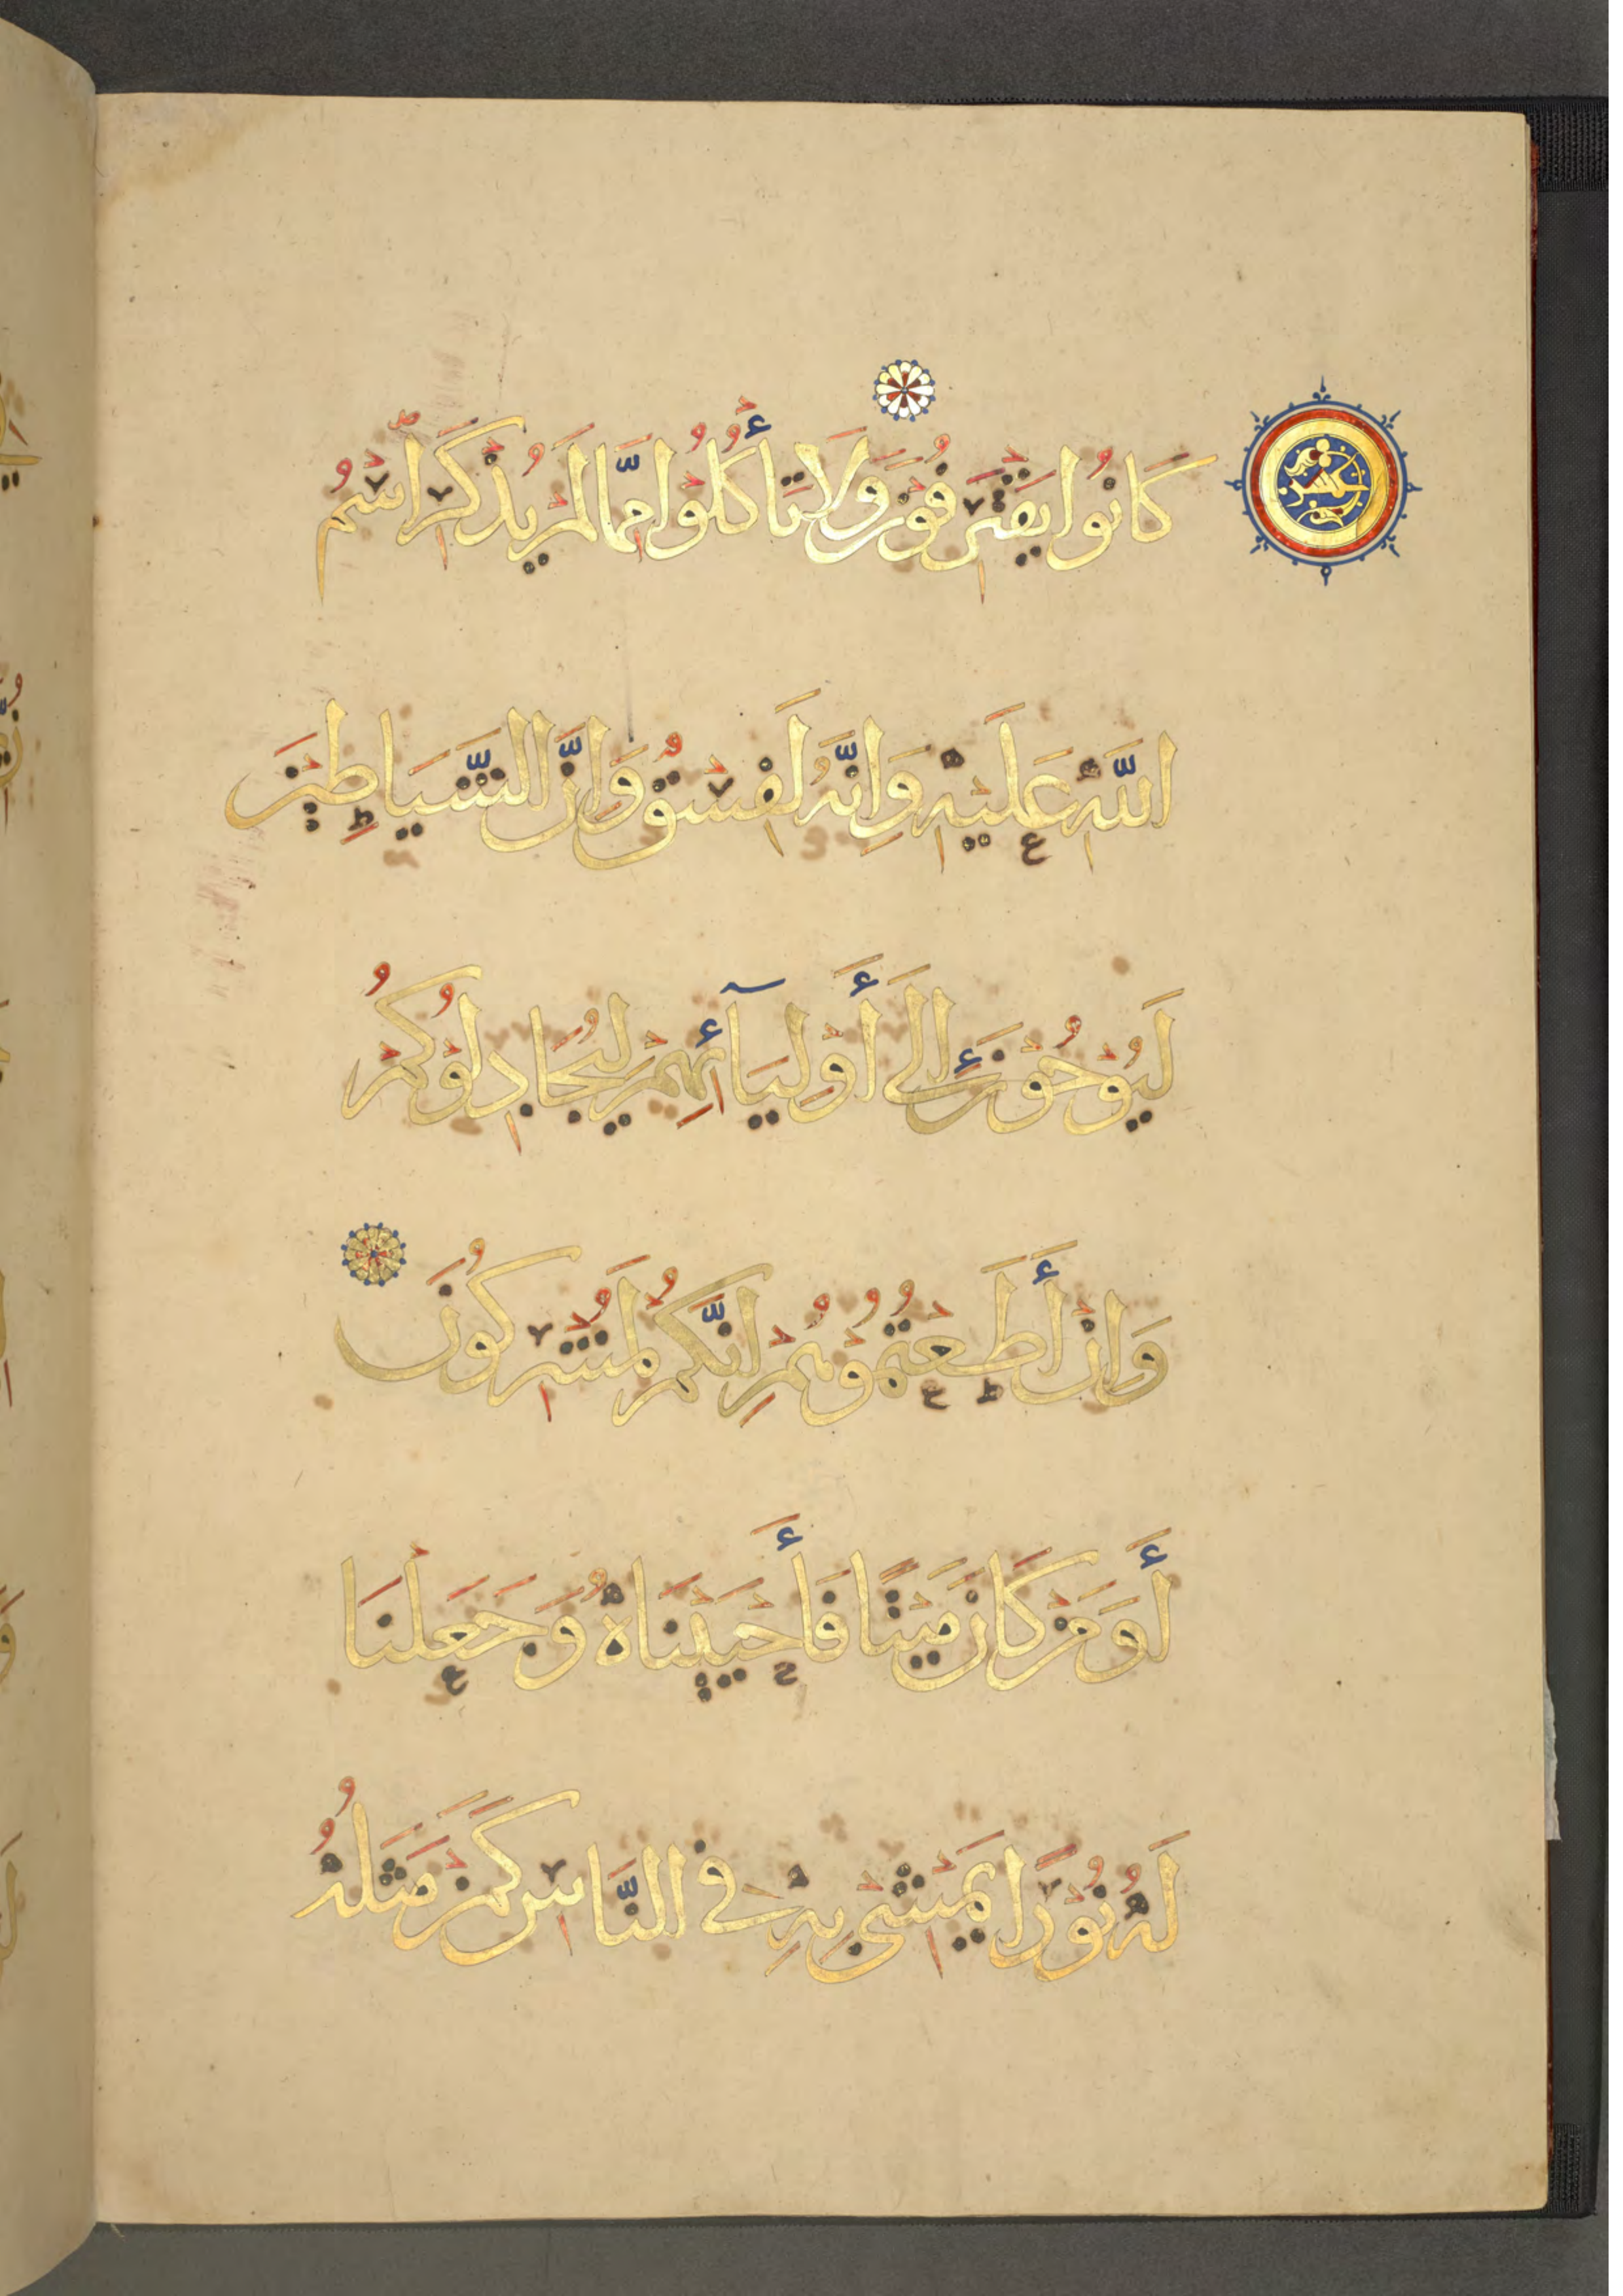 كَانُوا يَقْتَرِفُونَ وَلَا تَأْكُلُوا مِمَّا لَمْ يُذْكَرِ اسْمُ
اللَّهِ عَلَيْهِ وَإِنَّهُ لَفِسْقٌ وَإِنَّ الشَّيَاطِينَ
لَيُوحُونَ إِلَى أَوْلِيَآئِهِمْ لِيُجَادِلُوكُمْ
وَإِنْ أَطَعْتُمُوهُمْ إِنَّكُمْ لَمُشْرِكُونَ
أَوَمَنْ كَانَ مَيْتًا فَأَحْيَيْنَاهُ وَجَعَلْنَا
لَهُ نُورًا يَمْشِي بِهِ فِي النَّاسِ كَمَنْ مَثَلُهُ